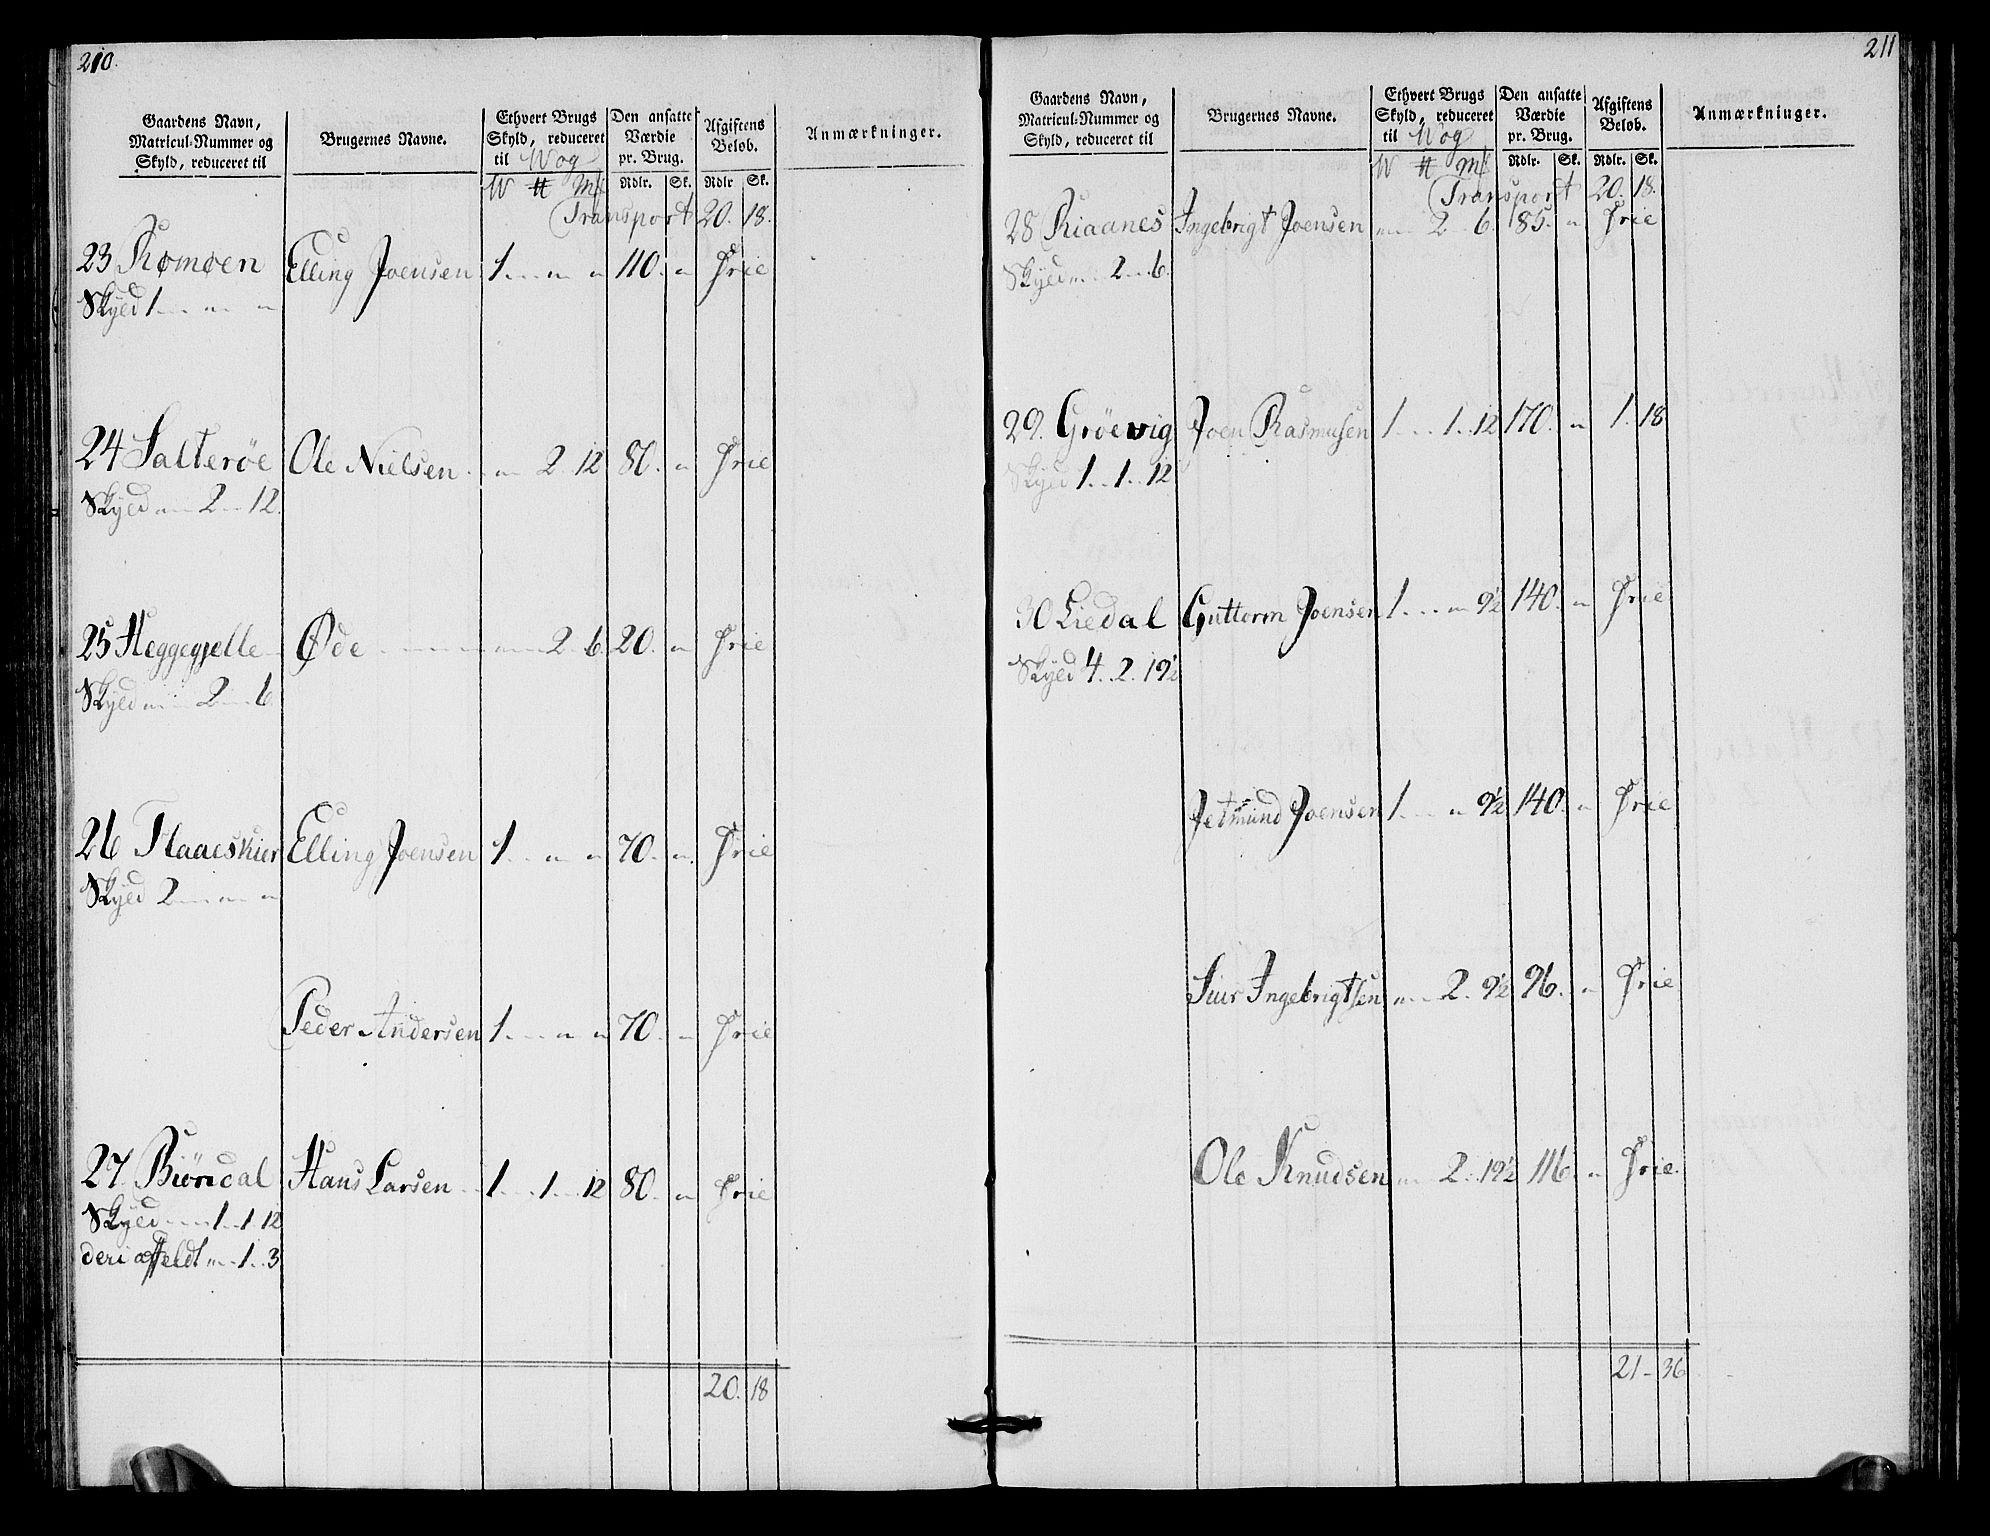 210.
Gaardens Navn, Matricul-Nummer og Skyld, reduceret til
Brugernes Navne.
Ethvert Brugs Skyld, reduceret til Wog
Den ansatte Værdie pr. Brug.
Afgiftens Beløb.
Anmærkninger.
W # Mk Rdlr. Sk. Rdlr Sk.
Transport 20. 18.
23 Romøen Elling Joensen 1 110. Frie
Skyld 1
24 Salterøe Ole Nielsen 2 12 80. Frie
Skyld 2 12.
25 Heggegjelle Øde 2 6. 20. Frie
Skyld 2 6.
26 Flaaeskier Elling Joensen 1 70. Frie
Skyld 2
Peder Andersen 1 70. Frie
27. Biørdal Hans Larsen 1 1 12 80. Frie
Skyld 1 1 12
deri øffeldt 1 3
20. 18
211
Gaardens Navn, Matricul-Nummer og Skyld, reduceret til
Brugernes Navne.
Ethvert Brugs Skyld, reduceret til Wog
Den ansatte Værdie pr. Brug.
Afgiftens Beløb.
Anmærkninger.
W # Mk Rdlr. Sk. Rdlr. Sk.
Transport 20. 18.
28 Riaanes Ingebrigt Joensen 2 6. 85. Frie
Skyld 2 6.
29. Grøevig Joen Rasmusen 1 1 12 170. 1. 18
Skyld 1 1 12
30 Liedal Guttorm Joensen 1 9½ 140. Frie
Skyld 4. 2. 19½
Jetmund Joensen 1 9½ 140. Frie
Siur Ingebrigtsen 2. 9½ 96. Frie
Ole Knudsen 2. 19½ 116. Frie.
21 - 36